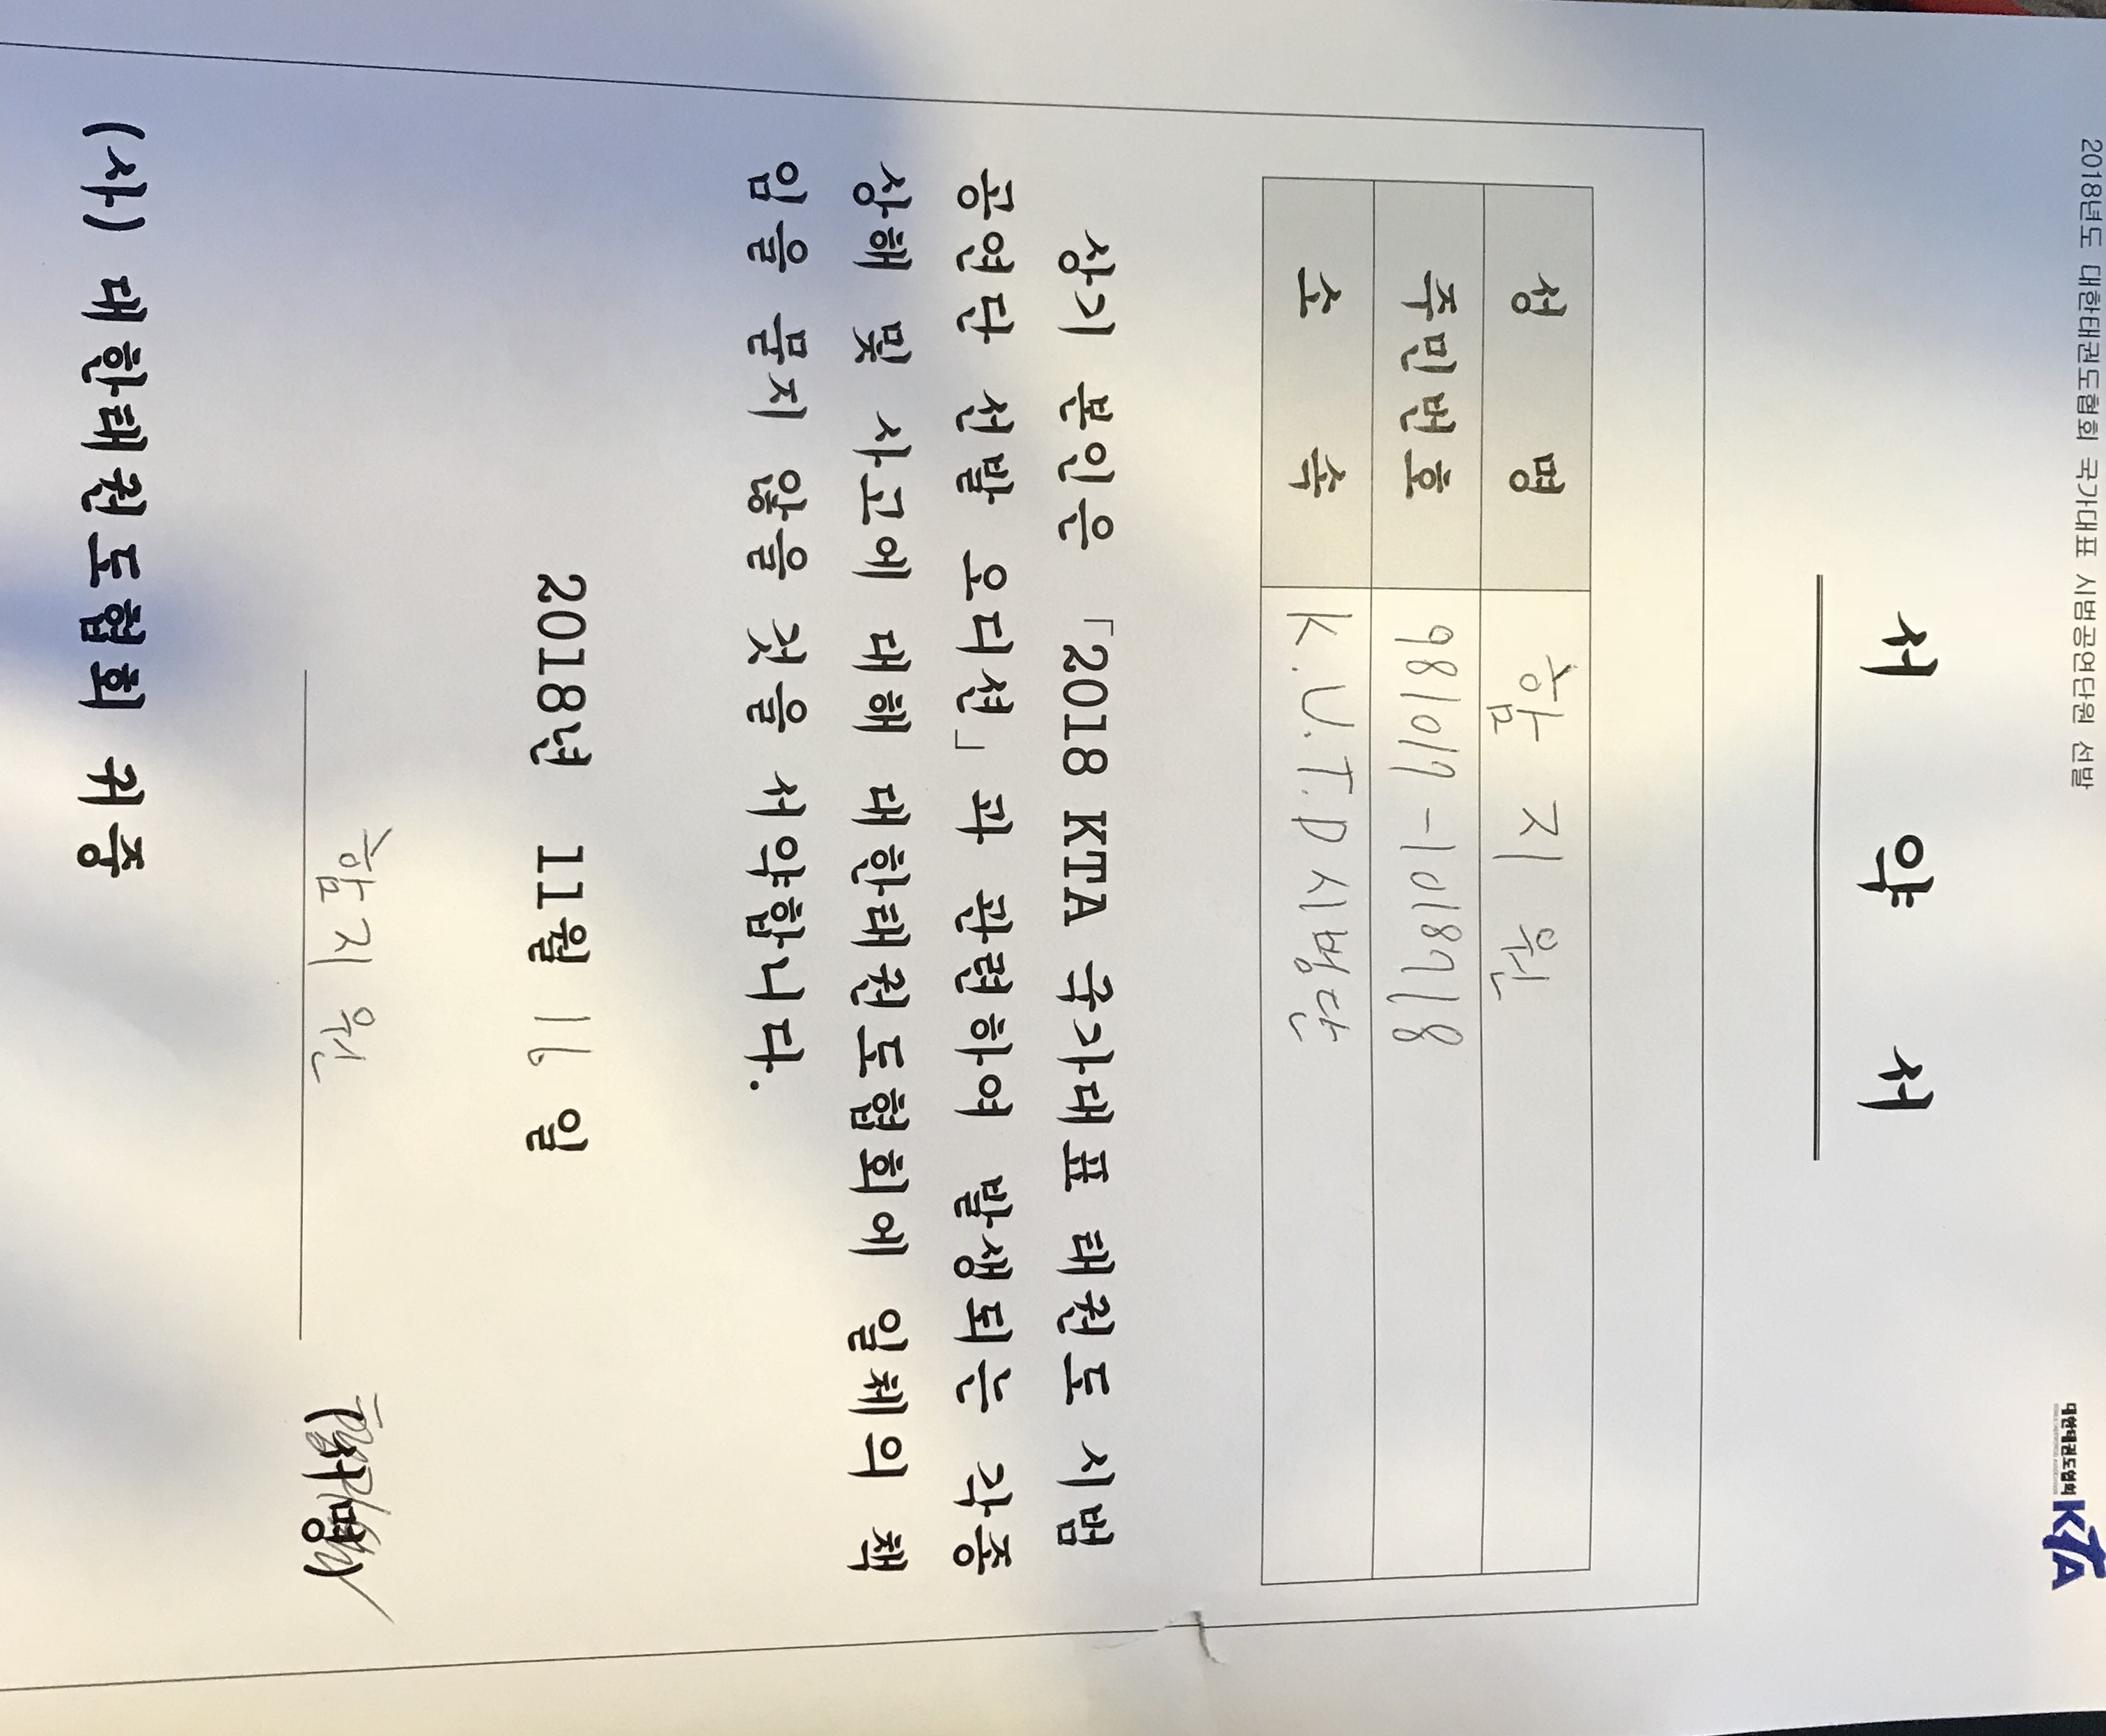 2018년도 대한태권도협회 국가대표 시범공연단원 선발
대한태권도협회 KTA
서 약 서
성 명 함 지 원
주민번호
소 속 K.U.T.D 시범단
상기 본인은 「2018 KTA 국가대표 태권도 시범
공연단 선발 오디션」과 관련하여 발생되는 각종
상해 및 사고에 대해 대한태권도협회에 일체의 책
임을 묻지 않을 것을 서약합니다.
2018년 11월 16일
함 지 원 (서명)
(사) 대한태권도협회 귀중